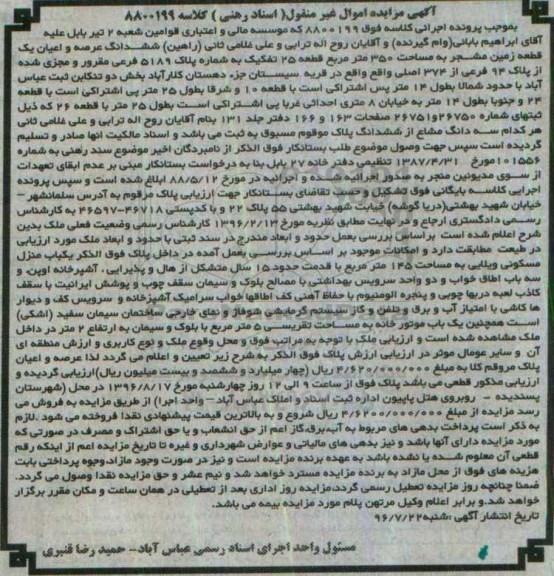 آگهی مزایده اموال غیر منقول( اسناد رهنی ) کلاسه ۸۸۰۰۱۹۹
بموجب پرونده اجرائی کلاسه فوق ۸۸۰۰۱۹۹ که موسسه مالی و اعتباری قوامین شعبه ۲ تیر بابل علیه
آقای ابراهیم بابائی(وام گیرنده) و آقایان روح اله ترابی و علی غلامی ثانی (راهین) ششدانگ عرصه و اعیان یک
قطعه زمین مشجر به مساحت ۳۵۰ متر مربع قطعه ۲۵ تفکیک به شماره پلاک ۵۱۸۹ فرعی مفروز و مجزی شده
از پلاک ۹۴ فرعی از ۳۷۴ اصلی واقع واقع در قریه سیستان جزء دهستان کلارآباد بخش دو تنکابن ثبت عباس
آباد با حدود شمالا بطول ۱۴ متر پس اشتراکی است با قطعه ۱۰ و شرقا بطول ۲۵ متر پی اشتراکی است با قطعه
۲۴ و جنوبا بطول ۱۴ متر به خیابان ۸ متری احداثی غربا پی اشتراکی است بطول ۲۵ متر با قطعه ۲۶ که ذیل
ثبتهای شماره ۲۶۷۵۰و۲۶۷۵۱ صفحات ۱۶۳ و ۱۶۶ دفتر جلد ۱۳۱ بنام آقایان روح اله ترابی و علی غلامی ثانی
هر کدام سه دانگ مشاع از ششدانگ پلاک مرقوم مسبوق به ثبت می باشد و اسناد مالکیت انها صادر و تسلیم
گردیده است سپس جهت وصول موضوع طلب بستانکار فوق الذکر از نامبردگان اخیر موضوع سند رهنی به شماره
۱۰۱۵۵۶مورخ ۱۳۸۷/۴/۳۱ تنظیمی دفتر خانه ۲۷ بابل بنا به درخواست بستانکار مبنی بر عدم ایفای تعهدات
از سوی مدیونین منجر به صدور اجرائیه شده و اجرائیه در مورخ ۸۸/۵/۱۲ ابلاغ شده است و سپس پرونده
اجرایی کلاسه بایگانی فوق تشکیل و حسب تقاضای بستانکار جهت ارزیابی پلاک مرقوم به آدرس سلمانشهر –
خیابان شهید بهشتی(دریا گوشه) خیابت شهید بهشتی ۵۵ پلاک ۲۲ و با کدپستی ۴۶۷۱۸-۴۶۵۹۷ به کارشناس
رسمی دادگستری ارجاع و در نهایت مطابق نظریه مورخ ۱۳۹۶/۲/۱۳ کارشناس رسمی وضعیت فعلی ملک بدین
شرح اعلام شده است براساس بررسی بعمل حدود و ابعاد مندرج در سند ثبتی با حدود و ابعاد ملک مورد ارزیابی
در طبیعت مطابقت دارد و امکانات موجود بر اساس بررسی بعمل آمده در داخل پلاک فوق الذکر یکباب منزل
مسکونی ویلایی به مساحت ۱۴۵ متر مربع با قدمت حدود ۱۵ سال متشکل از هال و پذیرایی ، آشپرخانه اوپن و
سه باب اطاق خواب و دو واحد سرویس بهداشتی با مصالح بلوک و سیمان سقف چوب و پوشش ایرانیت با سقف
کاذب لمبه دربها چوبی و پنجره الومنیوم با حفاظ آهنی کف اطاقها خواب سرامیک آشپزخانه و سرویس کف و دیوار
ها کاشی با امتیاز آب و برق و تلفن و گاز سیستم گرمایشی شوفاژ و نمای خارجی ساختمان سیمان سفید (اشکی)
است همچنین یک باب موتور خانه به مساحت تقریسی ۵ متر مربع با بلوک و سیمان به ارتفاع ۲ متر در داخل
ملک مشاهده شده است و ارزیابی ملک با توجه به مراتب فوق و محل وقوع ملک و نوع کاربری و ارزش منطقه ای
آن و سایر عوامل موثر در ارزیابی ارزش پلاک فوق الذکر به شرح زیر تعیین و اعلام می گردد لذا عرصه و اعیان
پلاک مرقوم کلا به مبلغ ۴/۶۲۰/۰۰۰/۰۰۰ ریال (چهار میلیارد و ششصد و بیست میلیون ریال)ارزیابی گردیده و
ارزیابی مذکور قطعی می باشد پلاک فوق از ساعت ۹ الی ۱۲ روز چهارشنبه مورخ ۱۳۹۶/۸/۱۷ در محل (شهرستان
پسندیده – روبروی هتل پاپیون اداره ثبت اسناد و املاک عباس آباد– واحد اجرا) از طریق مزایده به فروش می
رسد مزایده از مبلغ ۴/۶۲۰/۰۰۰/۰۰۰ ریال شروع و به بالاترین قیمت پیشنهادی نقدا فروخته می شود .لازم
به ذکر است پرداخت بدهی های مربوط به آب،برق،گاز اعم از حق انشعاب و یا حق اشتراک و مصرف در صورتی که
مورد مزایده دارای آنها باشد و نیز بدهی های مالیاتی و عوارض شهرداری و غیره تا تاریخ مزایده اعم از اینکه رقم
قطعی آن معلوم شده یا نشده باشد به عهده برنده مزایده است و نیز در صورت وجود مازاد،وجوه پرداختی بابت
هزینه های فوق از محل مازاد به برنده مزایده مسترد خواهد شد و نیم عشر و حق مزایده نقدا وصول می گردد.
ضمنا چنانچه روز مزایده تعطیل رسمی گردد،مزایده روز اداری بعد از تعطیلی در همان ساعت و مکان مقرر برگزار
خواهد شد.و برابر اعلام وکیل مرتهن پلام مورد مزایده بیمه می باشد.
تاریخ انتشار آگهی :شنبه۹۶/۷/۲۲
مسئول واحد اجرای اسناد رسمی عباس آباد– حمید رضا قنبری